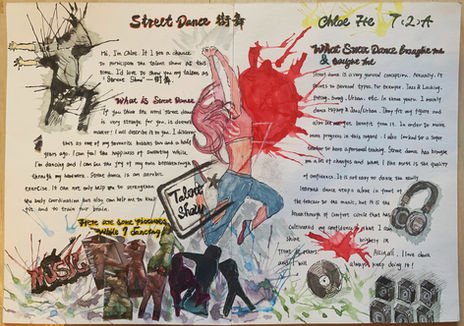 Street Dance 街舞
Chloe 7.2.A
Hi, I'm Chloe. If I got a chance
to participate the talent show at this
time, I'd love to show you my talent as
"Street Show" — 街舞.
What is Street Dance
If you think the word street dance
is very strange for you, it doesn't
matter! I will describe it to you. I discover
this as one of my favourite hobbies two and a half
years ago. I can feel the happiness of sweating while
I'm dancing and I can see the joy of my own breakthrough
through my hardwork. Street dance is an aerobic
exercise. It can not only help me to strengthen
the body coordination but also can help me to keep
fit and to train our brain.
Here are some pictures
while I dancing!
MUSIC
Talent
Show
What Street Dance brought me
& taught me
Street dance is a very general conception. Actually, it
things to several types. For example, Jazz & Locking,
Urban, etc. In these years, I mainly
dance Hiphop & Jazz/Urban. They fit my
and benefit from it. In order to make
more progress in this regard, I also looked for a
teacher to have a personal training. Street dance has brought
me a lot of changes and what I like most is the quality
of confidence. It is not easy to dance the newly
learned dance steps alone in front of
the teacher to the music, but it is the
breakthrough of comfort circle that has
cultivated my confidence to what I am
shine brightly in
I love dance
and I will always keep doing it!